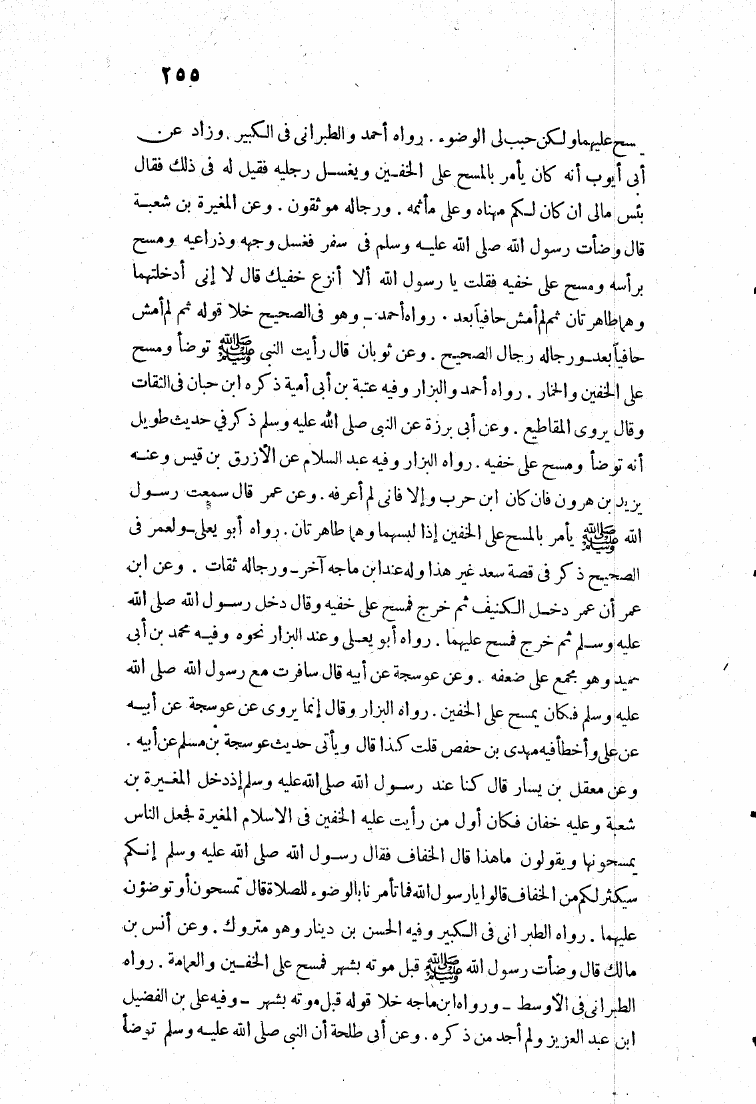 ٢٥٥
يمسح عليهما ولكن حبب لى الوضوء . رواه أحمد والطبرانى فى الكبير . وزاد عن
أبى أيوب أنه كان يأمر بالمسح على الخفين ويغسل رجليه فقيل له فى ذلك فقال
بئس مالى ان كان لكم مهناه وعلى مأثمه . ورجاله موثقون . وعن المغيرة بن شعبة
قال وضأت رسول الله صلى الله عليه وسلم فى سفر فغسل وجهه وذراعيه ومسح
برأسه ومسح على خفيه فقلت يا رسول الله ألا أنزع خفيك قال لا إنى أدخلتهما
وهما طاهرتان ثم لم أمش حافياً بعد . رواه أحمد - وهو فى الصحيح خلا قوله ثم لم أمش
حافياً بعد - ورجاله رجال الصحيح . وعن ثوبان قال رأيت النبى ﷺ توضأ ومسح
على الخفين والخمار . رواه أحمد والبزار وفيه عتبة بن أبى أمية ذكره ابن حبان فى الثقات
وقال يروى المقاطيع . وعن أبى برزة عن النبى صلى الله عليه وسلم ذكر في حديث طويل
أنه توضأ ومسح على خفيه . رواه البزار وفيه عبد السلام عن الأزرق بن قيس وعنه
يزيد بن هرون فان كان ابن حرب وإلا فانى لم أعرفه . وعن عمر قال سمعت رسول
الله ﷺ يأمر بالمسح على الخفين إذا لبسهما وهما طاهرتان . رواه أبو يعلى - ولعمر فى
الصحيح ذكر فى قصة سعد غير هذا وله عند ابن ماجه آخر - ورجاله ثقات . وعن ابن
عمر أن عمر دخل الكنيف ثم خرج فمسح على خفيه وقال دخل رسول الله صلى الله
عليه وسلم ثم خرج فمسح عليهما . رواه أبو يعلى وعند البزار نحوه وفيه محمد بن أبى
حميد وهو مجمع على ضعفه . وعن عوسجة عن أبيه قال سافرت مع رسول الله صلى الله
عليه وسلم فكان يمسح على الخفين . رواه البزار وقال إنما يروى عن عوسجة عن أبيه
عن على وأخطأ فيه مهدى بن حفص قلت كذا قال ويأتى حديث عوسجة بن مسلم عن أبيه .
وعن معقل بن يسار قال كنا عند رسول الله صلى الله عليه وسلم إذ دخل المغيرة بن
شعبة وعليه خفان فكان أول من رأيت عليه الخفين فى الاسلام المغيرة فجعل الناس
يمسحونها ويقولون ماهذا قال الخفاف فقال رسول الله صلى الله عليه وسلم إنكم
سيكثر لكم من الخفاف قالوا يارسول الله فما تأمرنا بالوضوء للصلاة قال تمسحون أو توضؤن
عليهما . رواه الطبرانى فى الكبير وفيه الحسن بن دينار وهو متروك . وعن أنس بن
مالك قال وضأت رسول الله ﷺ قبل موته بشهر فمسح على الخفين والعمامة . رواه
الطبرانى فى الأوسط - ورواه ابن ماجه خلا قوله قبل موته بشهر - وفيه على بن الفضيل
ابن عبد العزيز ولم أجد من ذكره . وعن أبى طلحة أن النبى صلى الله عليه وسلم توضأ